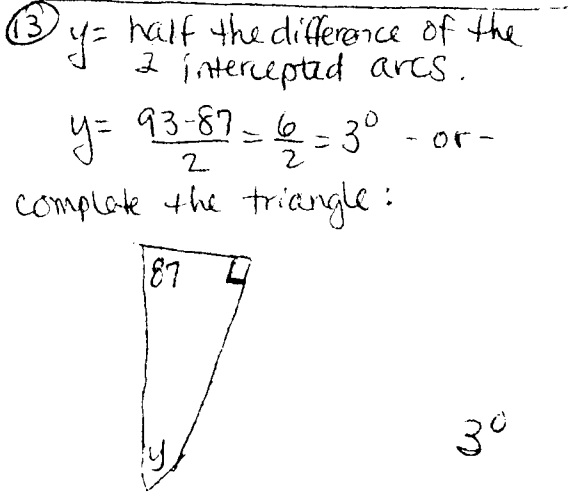 13 y = half the difference of the
2 intercepted arcs.
y = 93-87/2 = 6/2 = 3° - or -
complete the triangle :
87
y
3°